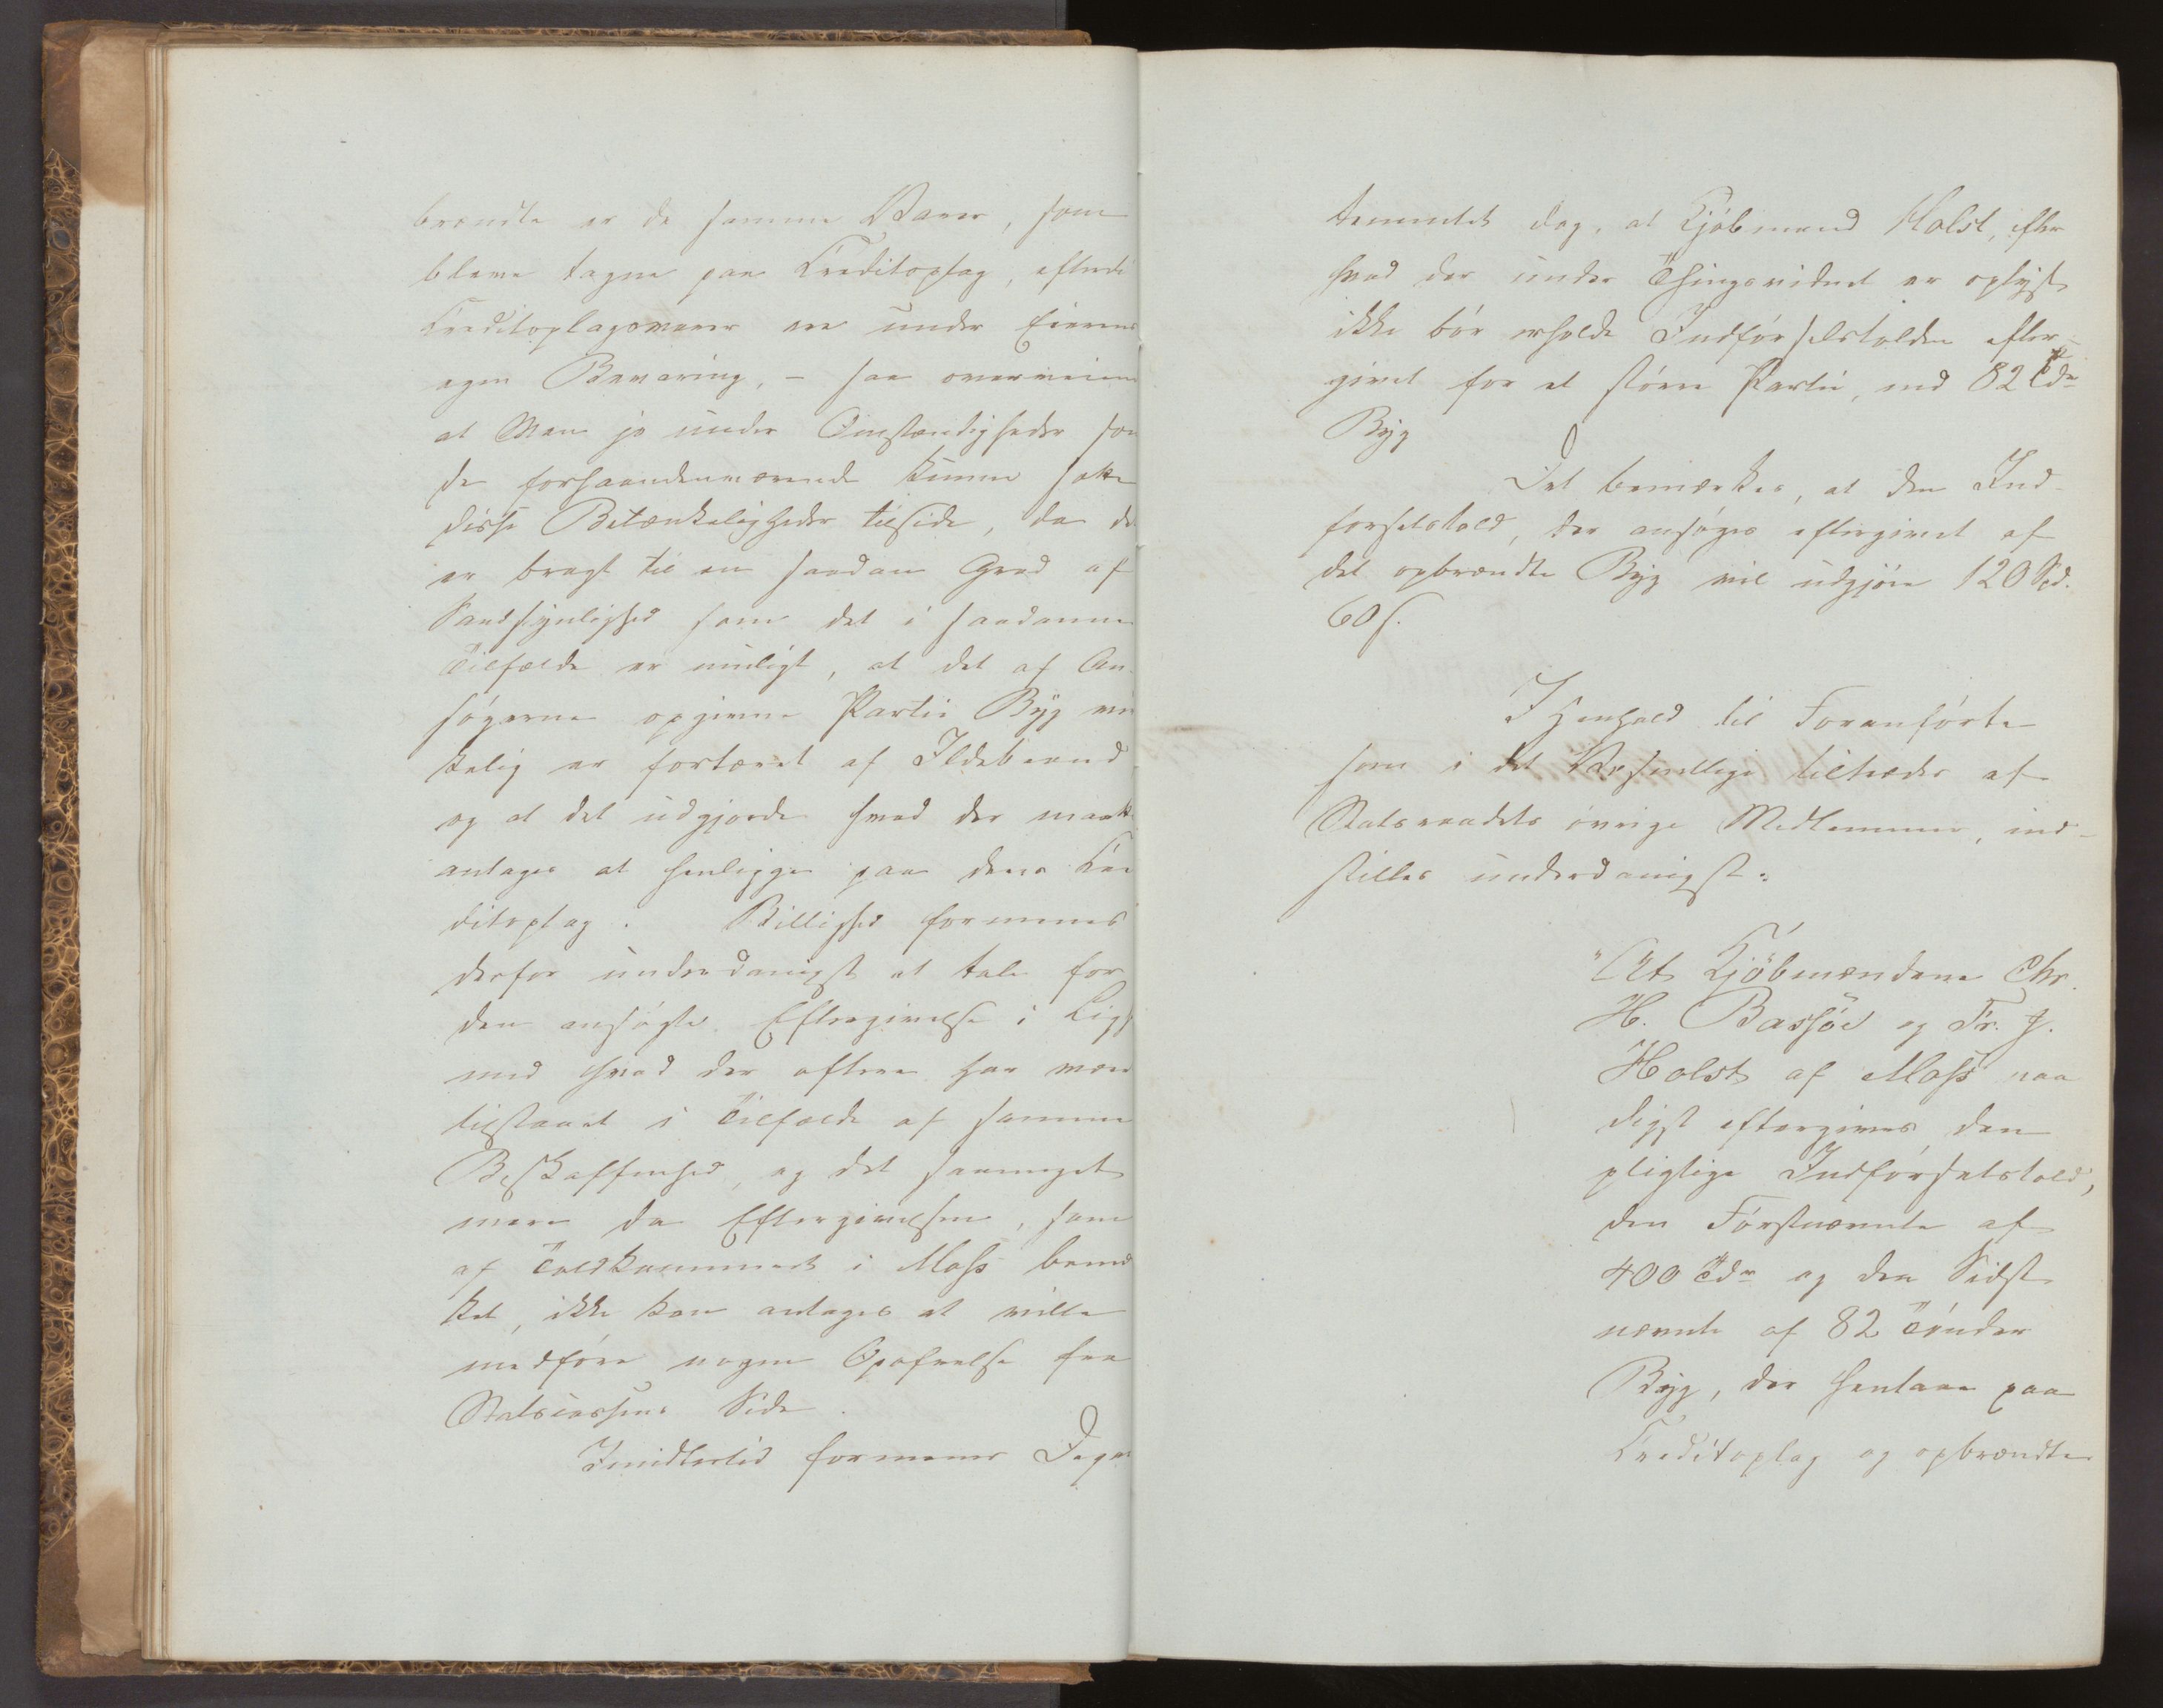 brændte er de samme Varer, som
bleve tagne paa Creditoplag, efterdi
Creditoplagsvarer ere under Eierens
egen Bevaring, – saa overveiende
at Man jo under Omstændigheder som
de forhaandenværende kunne sætte
disse Betænkeligheder tilside, da det
er bragt til en saadan Grad af
Sandsynlighed som det i saadanne
Tilfælde er muligt, at det af An-
søgerne opgivne Partie Byg vir
kelig er fortæret af Ildebrand
og at det udgjorde hvad der maatte
antages at henligge paa deres Cre
ditoplag. Billighed formenes
derfor underdanigst at tale for
den ansøgte Eftergivelse i Lighed
med hvad der oftere har været
tilstaaet i Tilfælde af samme
Beskaffenhed, og det saameget
mere da Eftergivelsen, som
af Toldkammeret i Moss bemær
ket, ikke kan antages at ville
medføre nogen Opofrelse fra
Statscassens Side.
Imidlertid formener Depar
tementet dog, at Kjøbmand Holst, efter
hvad der under Thingsvidnet er oplyst
ikke bør erholde Indførselstolden efter-
givet for et større Partie, end 82 Tdr
Byg
Det bemærkes, at den Ind-
førselstold, der ansøges eftergivet af
det opbrændte Byg vil udgjøre 120 Spd.
60 s.
I Henhold til Foranførte
som i det Væsentlige tiltrædes af
Statsraadets øvrige Medlemmer, ind-
stilles underdanigst:
"At Kjøbmændene Chr.
H. Bassøe og Fr. J.
Holst af Moss naa
digst eftergives den
pligtige Indførselstold,
den Førstnævnte af
400 Tdr og den Sidst
nævnte af 82 Tønder
Byg, der henlaae paa
Creditoplag og opbrændte